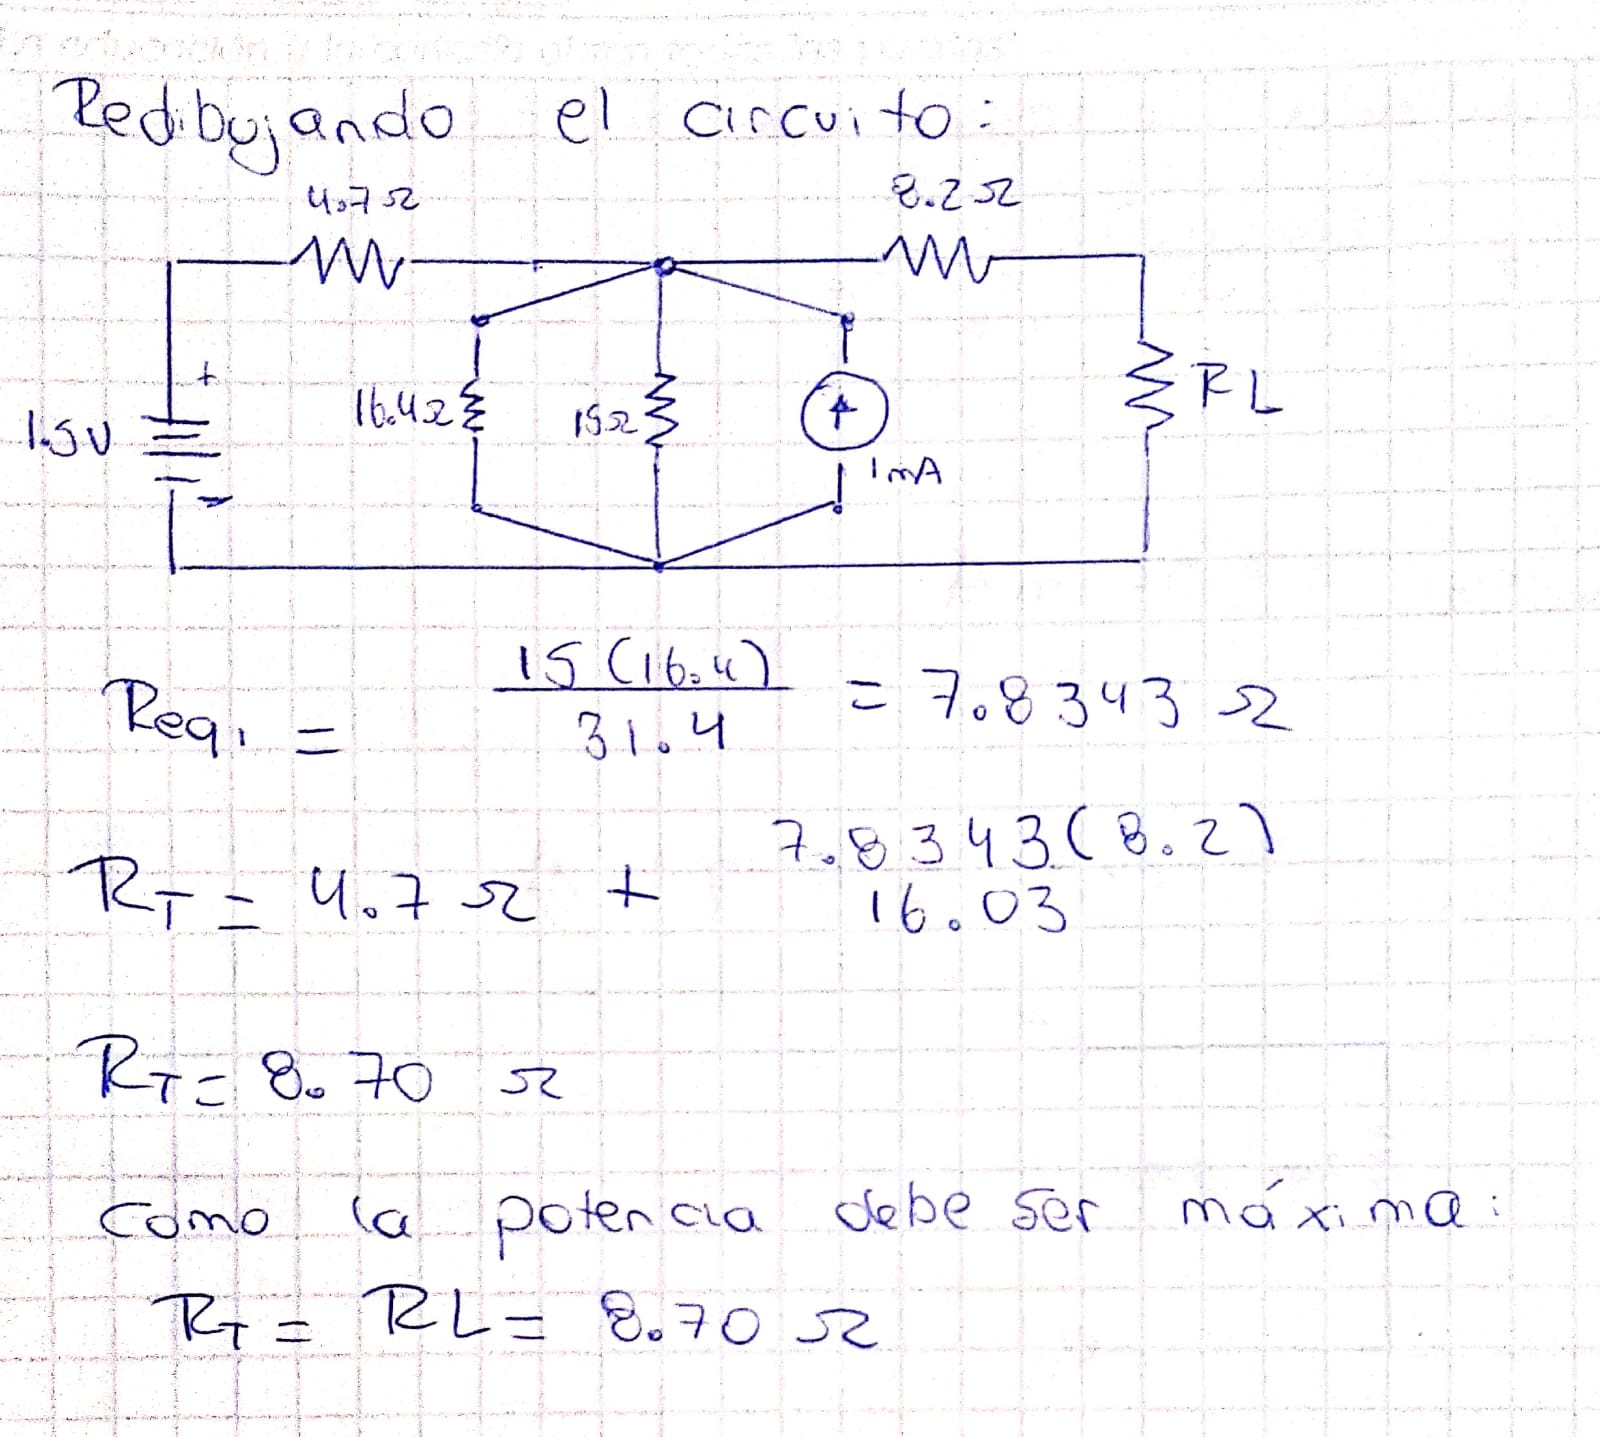 Redibujando el circuito:
4.7Ω
8.2Ω
+
1.5V
16.4Ω
15Ω
RL
1mA
-
Req1 = 15(16.4) / 31.4 = 7.8343 Ω
RT = 4.7 Ω + 7.8343(8.2)
16.03
RT = 8.70 Ω
Como la potencia debe ser máxima:
RT = RL = 8.70 Ω